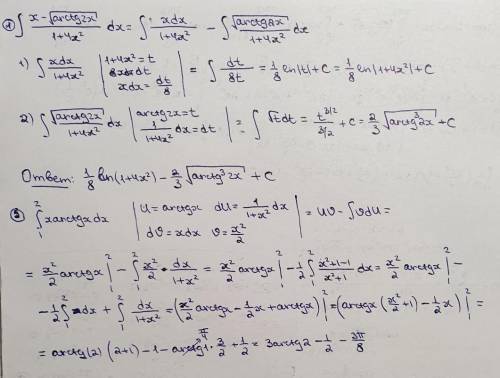 ① ∫ (x-√(arctg2x))/(1+4x²) dx = ∫ xdx/(1+4x²) - ∫ √(arctg8x)/(1+4x²) dx
1) ∫ xdx/(1+4x²) | 1+4x²=t 8xdx=dt xdx=dt/8 | = ∫ dt/8t = 1/8 ln|t|+C = 1/8 ln|1+4x²|+C
2) ∫ √(arctg2x)/(1+4x²) dx | arctg2x=t 1/(1+4x²) dx=dt | = ∫ √t dt = t^(3/2)/(3/2) +C = 2/3 √(arctg³2x) +C
Ответ: 1/8 ln(1+4x²) - 2/3 √(arctg³2x) + C
∫₁² xarctgxdx | U=arctgx dU=1/(1+x²) dx dϑ=xdx ϑ=x²/2 | = Uϑ-∫ϑdU=
= x²/2 arctgx |₁² - ∫₁² x²/2 · dx/(1+x²) = x²/2 arctgx |₁² - 1/2 ∫₁² (x²+1-1)/(x²+1) dx = x²/2 arctgx |₁² -
- 1/2 ∫₁² dx + ∫₁² dx/(1+x²) = (x²/2 arctgx - 1/2 x + arctgx) |₁² = (arctgx (x²/2 +1) - 1/2 x) |₁² =
= arctg(2) (2+1) - 1 - arctg1 π/4 · 3/2 + 1/2 = 3arctg2 - 1/2 - 3π/8